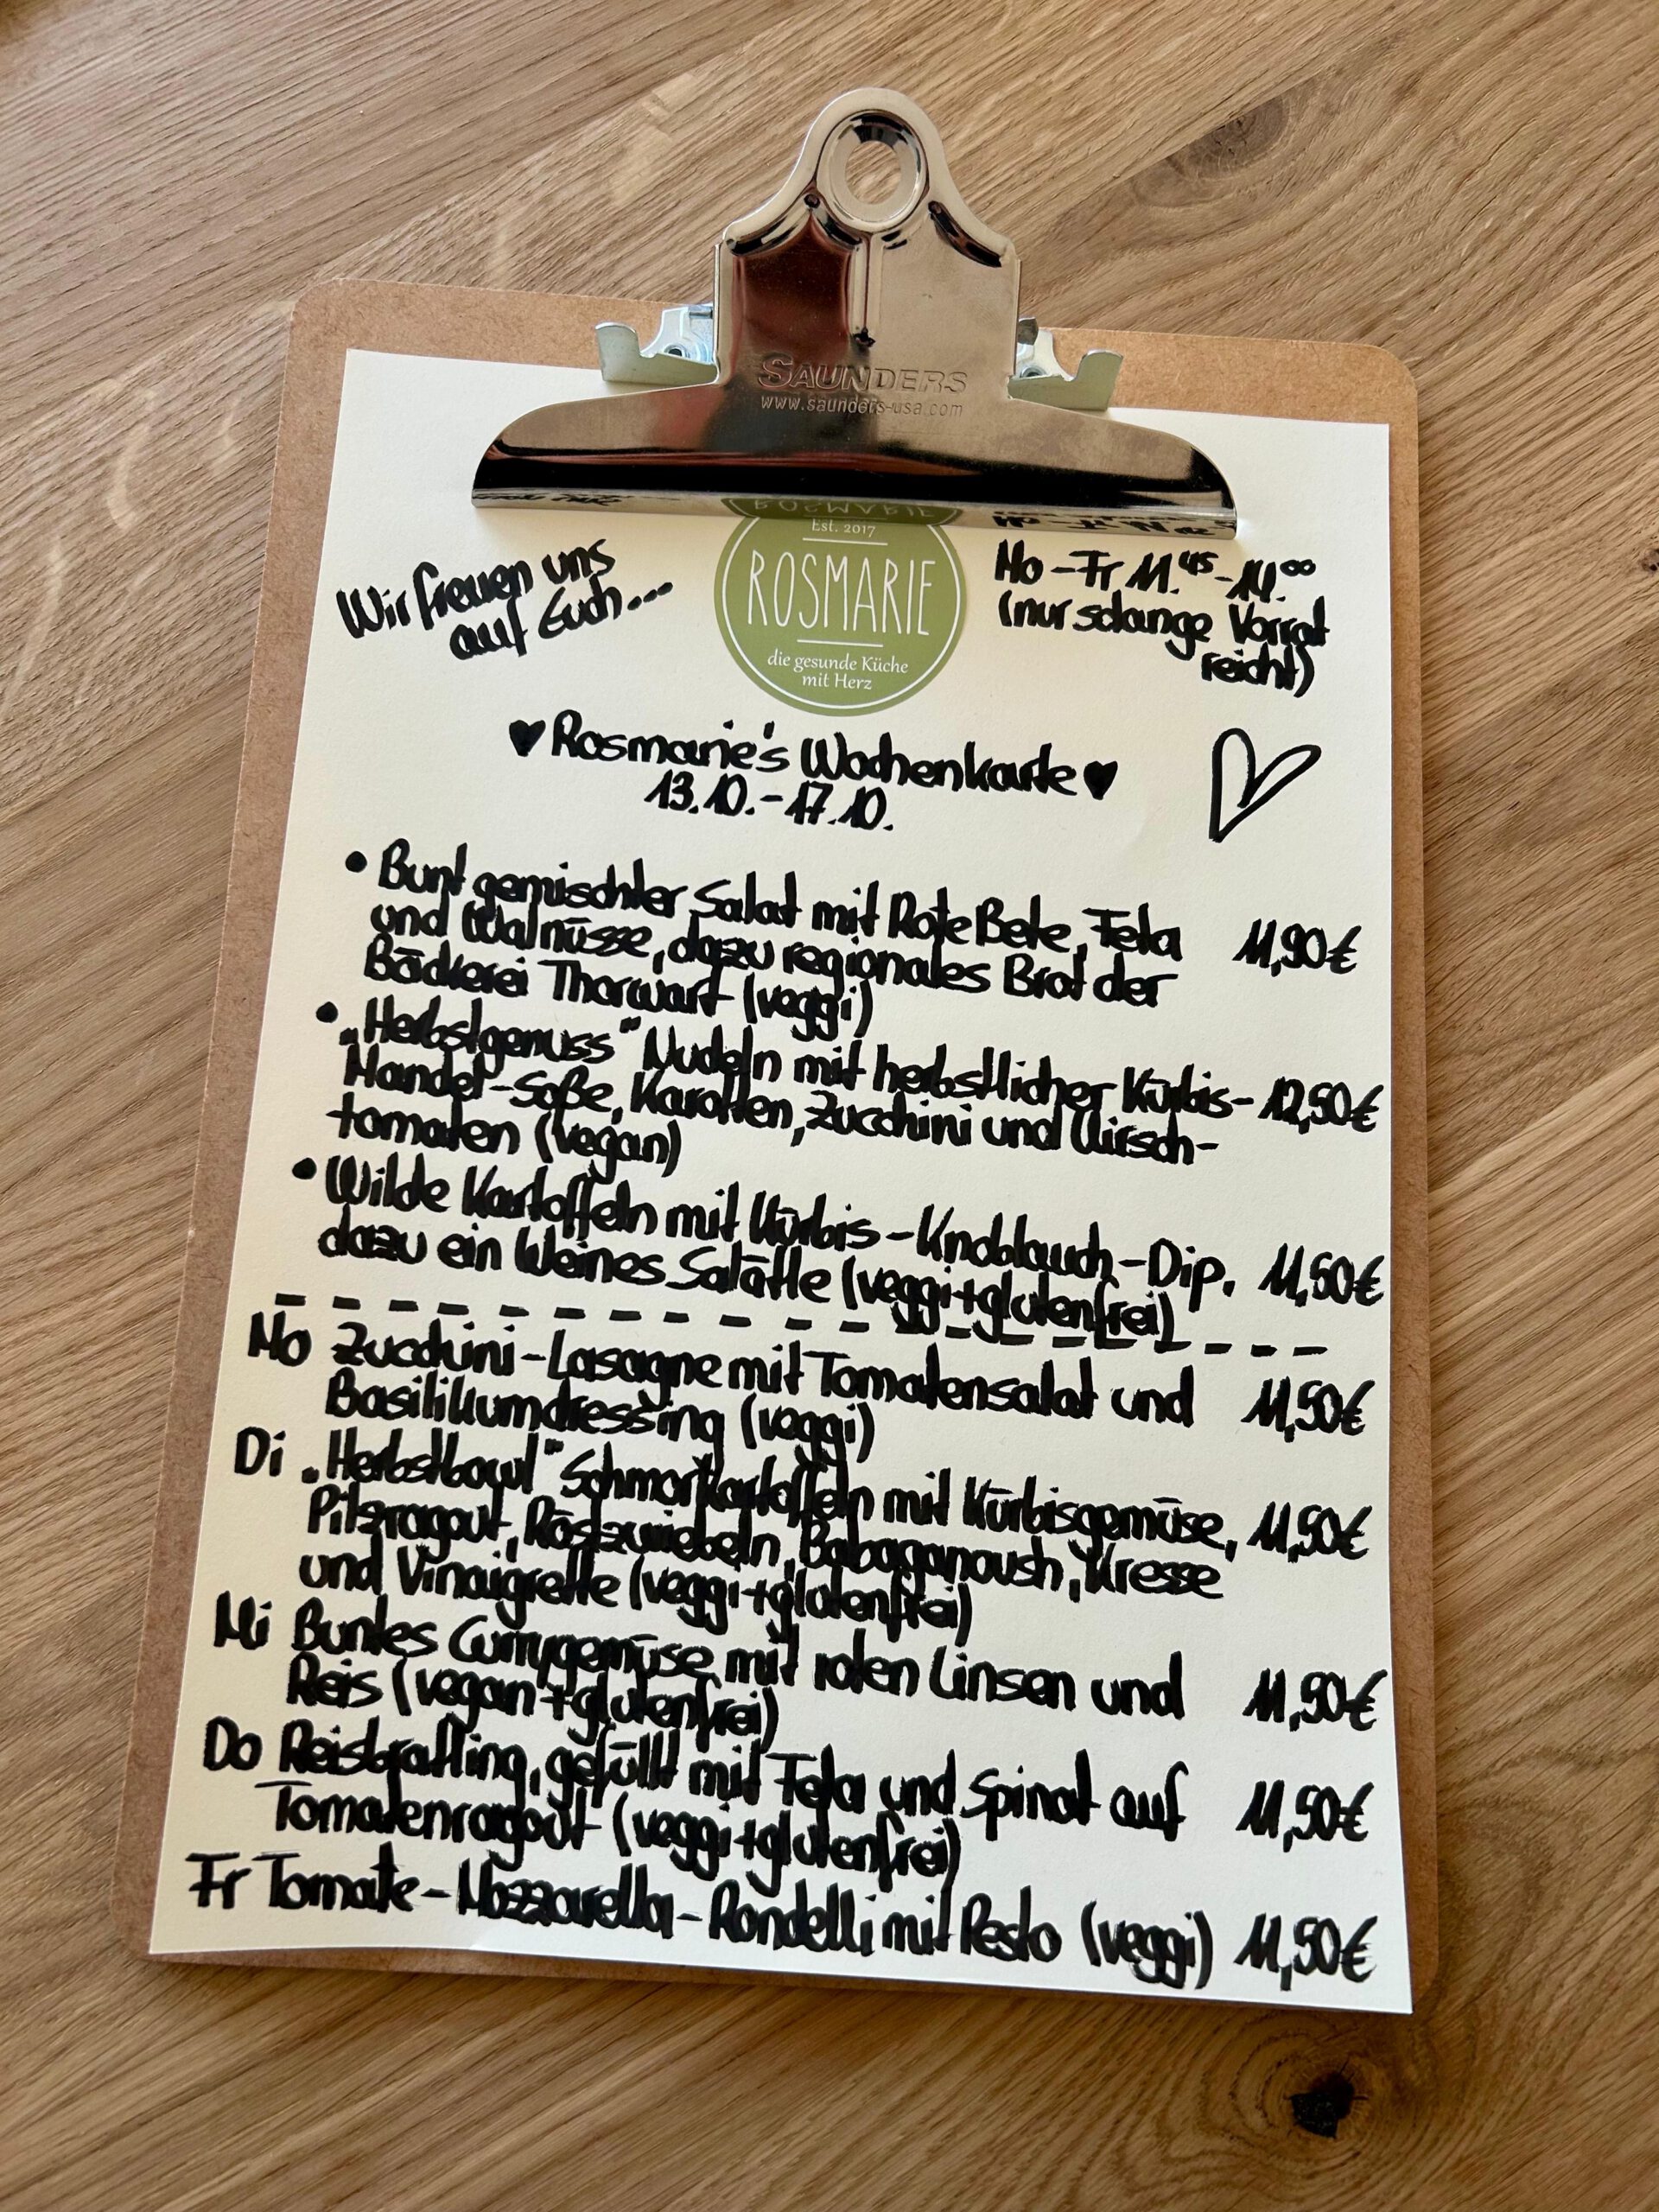 SAUNDERS
www.saunders-usa.com
Est. 2017
ROSMARIE
die gesunde Küche
mit Herz
Wir freuen uns
auf Euch...
Mo-Fr 11.45-14.00
(nur solange Vorrat
reicht)
♥Rosmarie's Wochenkarte♥
13.10.-17.10.
• Bunt gemischter Salat mit Rote Bete, Feta 11,90€
und Walnüsse, dazu regionales Brot der
Bäckerei Thorwart (veggi)
• „Herbstgenuss" Nudeln mit herbstlicher Kürbis- 12,50€
Mandel-Soße, Karotten, Zucchini und Kirsch-
tomaten (vegan)
• Wilde Kartoffeln mit Kürbis-Knoblauch-Dip, 11,50€
dazu ein kleines Salätle (veggi+glutenfrei)
Mo Zucchini-Lasagne mit Tomatensalat und 11,50€
Basilikumdressing (veggi)
Di „Herbstbowl" Schmorkartoffeln mit Kürbisgemüse, 11,50€
Pilzragout, Röstzwiebeln, Babaganoush, Kresse
und Vinaigrette (veggi+glutenfrei)
Mi Buntes Currygemüse mit roten Linsen und 11,50€
Reis (vegan+glutenfrei)
Do Reisbratling, gefüllt mit Feta und Spinat auf 11,50€
Tomatenragout (veggi+glutenfrei)
Fr Tomate-Mozzarella-Rondelli mit Pesto (veggi) 11,50€